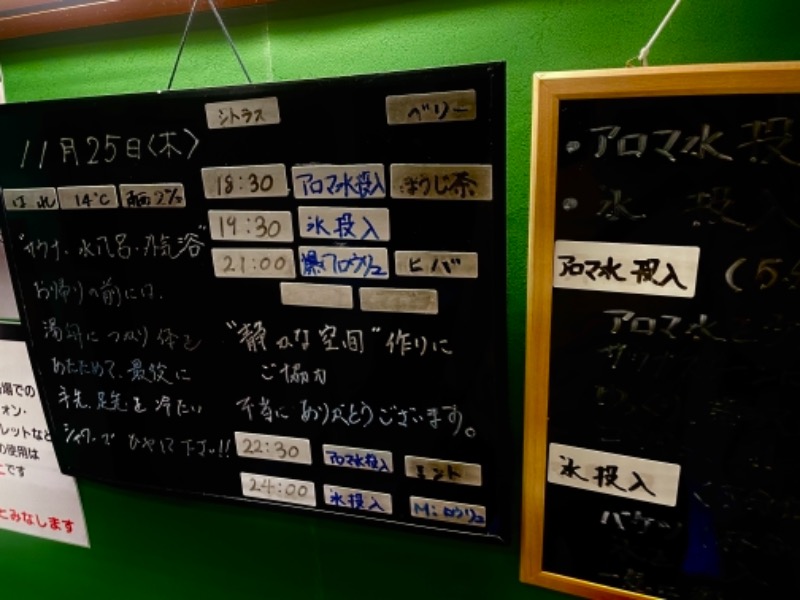 シトラス ベリー
11月25日〈木〉
はれ 14℃
18:30 アロマ水投入 ほうじ茶
19:30 氷投入
21:00 爆アロウリュ ヒバ
"サウナ・水風呂・外気浴"
お帰りの前には、
湯舟につかり体を
あたためて、最後に
手先、足先を冷たい
シャワーでひやして下さい!!
"静かな空間"作りに
ご協力
本当にありがとうございます。
22:30 アロマ水投入 ミント
24:00 氷投入 M:ロウリュ
・アロマ水投
・氷投入
アロマ水投入
アロマ水
氷投入
場での
ォン・
レットなど
の使用は
です
とみなします